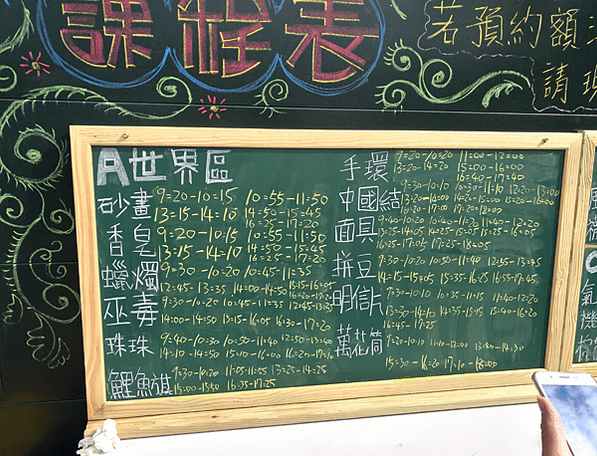 課程表
若預約額
請現
A世界區
砂畫 9:20-10:15 10:55-11:50
13:15-14:10 14:50-15:45
16:25-17:20
香皂 9:20-10:15 10:55-11:50
13:15-14:10 14:50-15:45
16:25-17:20
蠟燭 9:30-10:20 10:45-11:35
12:45-13:35 14:00-14:50 15:15-16:05
巫毒 9:30-10:20 10:45-11:35 12:45-13:35
14:00-14:50 15:15-16:05 16:30-17:20
珠珠 9:40-10:30 10:50-11:40 12:50-13:40
14:10-14:50 15:10-16:00 16:20-17:10
鯉魚旗 9:30-10:20 11:05-11:55 13:25-14:25
15:00-15:50 16:35-17:25
手環 9:20-10:20 11:00-12:00
13:20-14:20 15:00-16:00
16:40-17:40
中國結 9:30-10:10 10:30-11:10 12:20-13:00
13:20-14:00 14:20-15:00 15:20-16:00
16:20-17:00 17:20-18:00
面具 9:40-10:20 10:40-11:20 11:40-12:20
13:25-14:05 14:25-15:05 15:25-16:05
16:25-17:05 17:25-18:05
拼豆 9:30-10:20 10:50-11:40 12:55-13:45
14:15-15:05 15:35-16:25 16:55-17:45
明信片 9:30-10:10 10:35-11:15 11:40-12:20
13:30-14:10 14:35-15:15 15:40-16:20
16:45-17:25
萬花筒 9:20-10:10 11:10-12:00 13:40-14:30
15:30-16:20 17:10-18:00
氣
機